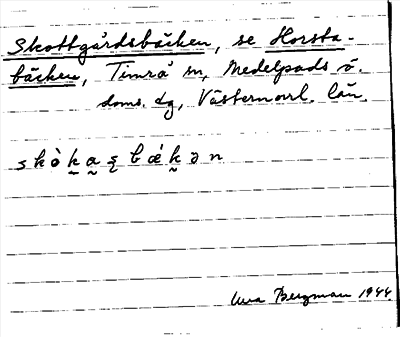 Skottgårdsbäcken, se Horsta-
bäcken, Timrå sn, Medelpads ö.
doms. dg, Västernorrl. län.
skòka̰s̨bǽkən
Bergman 1944